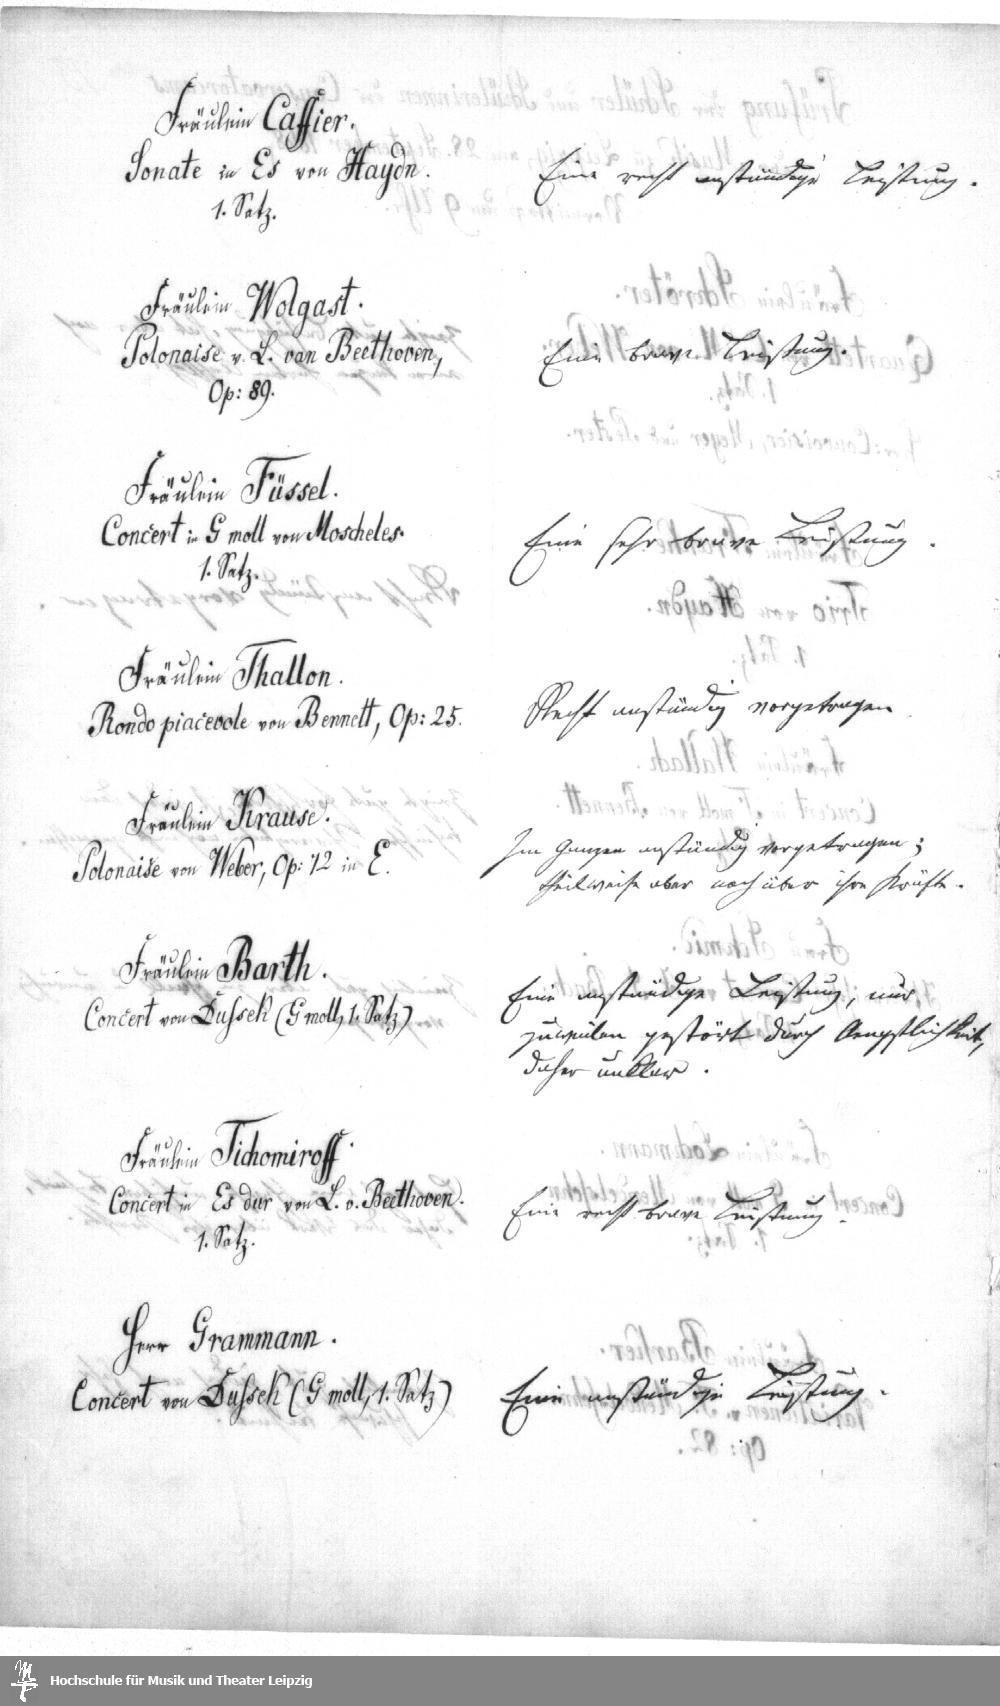 Fräulein Caffier.
Sonate in Es von Haydn.
1. Satz.
Eine recht anständige Leistung.
Fräulein Wolgast.
Polonaise v. L. van Beethoven,
Op: 89.
Eine brave Leistung.
Fräulein Füssel.
Concert in G moll von Moscheles.
1. Satz.
Eine sehr brave Leistung.
Fräulein Thallon.
Rondo piacevole von Bennett, Op: 25.
Recht anständig vorgetragen
Fräulein Krause.
Polonaise von Weber, Op: 72 in E.
Im Ganzen anständig vorgetragen;
theilweise aber noch über ihre Kräfte.
Fräulein Barth.
Concert von Dussek (G moll, 1. Satz)
Eine anständige Leistung, nur
zuweilen gestört durch Aengstlichkeit,
daher unklar.
Fräulein Tichomiroff.
Concert in Es dur von L. v. Beethoven.
1. Satz.
Eine recht brave Leistung.
Herr Grammann.
Concert von Dussek (G moll, 1. Satz)
Eine anständige Leistung.
Hochschule für Musik und Theater Leipzig